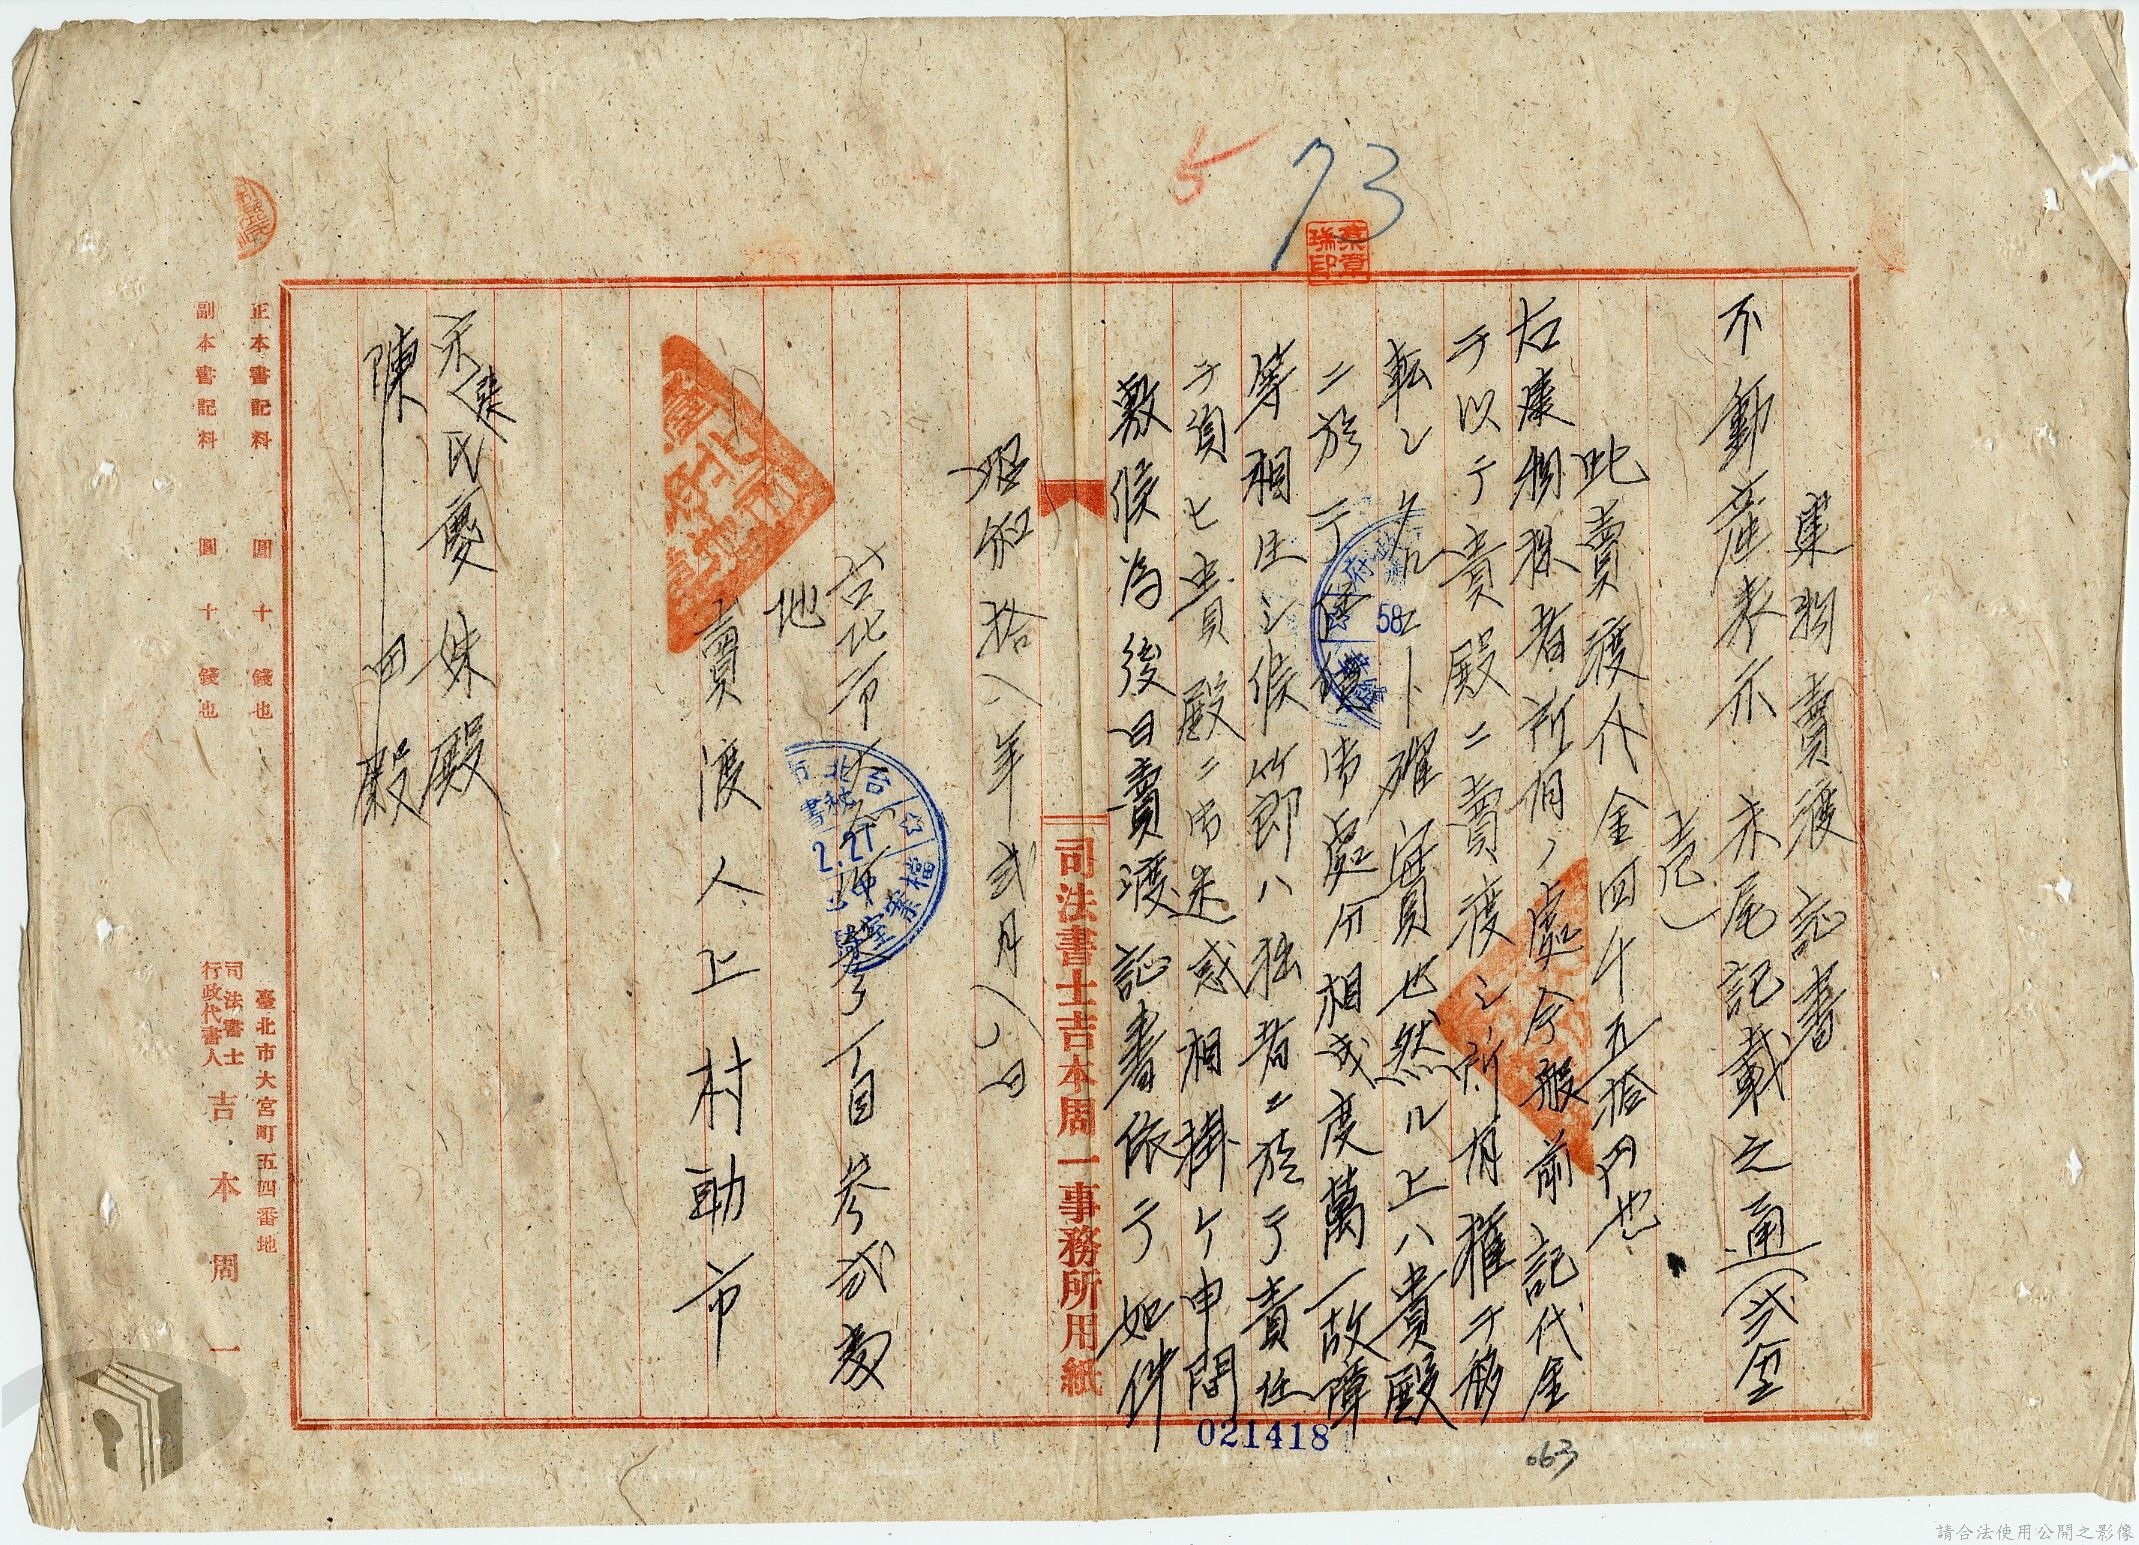 5
73
建物賣渡証書
不動産表示 末尾記載之通(弐金
壱)
此賣渡代金四千五拾円也
右建物拙者所有ノ處今般前記代金
ヲ以テ貴殿ニ賣渡シ所有權ヲ移
転シタルコト確実也然ル上ハ貴殿
ニ於テ
御處分相成度萬一故障
等相生シ候節ハ拙者ニ於テ責任
ヲ負ヒ貴殿ニ御迷惑相掛ケ申間
敷候為後日賣渡証書依テ如件
司法書士吉本周一事務所用紙
昭和拾八年弐月八日
台北市
丁目参弐番
地
賣渡人上村助市
氏慶妹殿
陳 四殿
正本書記料 圓十錢也
副本書記料 圓十錢也
臺北市大宮町五四番地
司法書士
行政代書人 吉本周一
58
台北市
2.27
檔案室
021418
063
請合法使用公開之影像